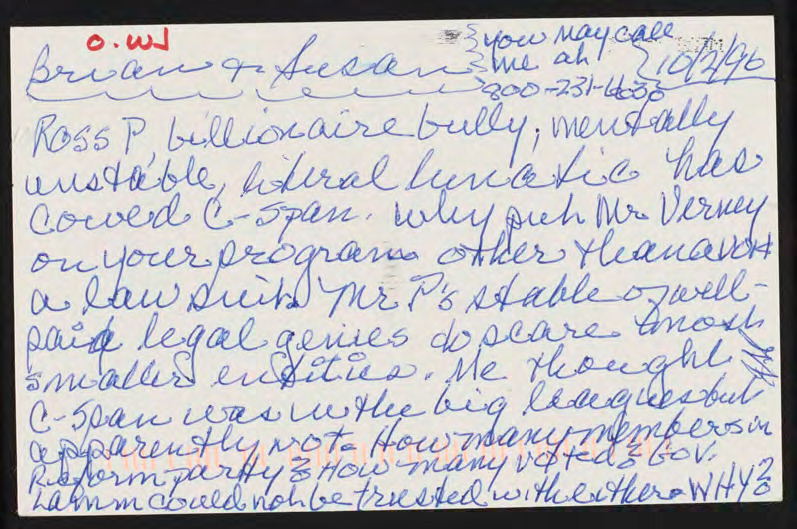 O.W.
you may call
Brian & Susan me at 10/2/96
800-231-
Ross P billionaire bully, mentally
unstable, literal lunatic has
cowed C-Span. Why put Mr Verney
on your program other than avoid
a law suit. Mr P's stable of well-
paid legal genies do scare most
smaller entities. Me thought
C-Span was in the big leagues but
apparently not. How many members in
Reform party? How many voted? Gov.
Lamm could not be trusted with either WHY?